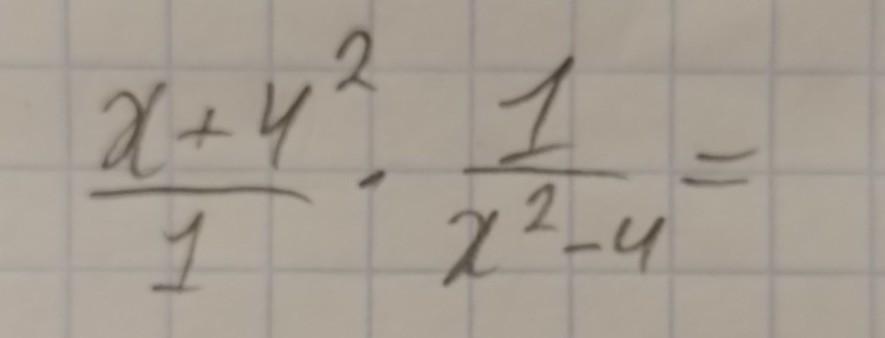 \frac{x+4^2}{1} \cdot \frac{1}{x^2-4} =